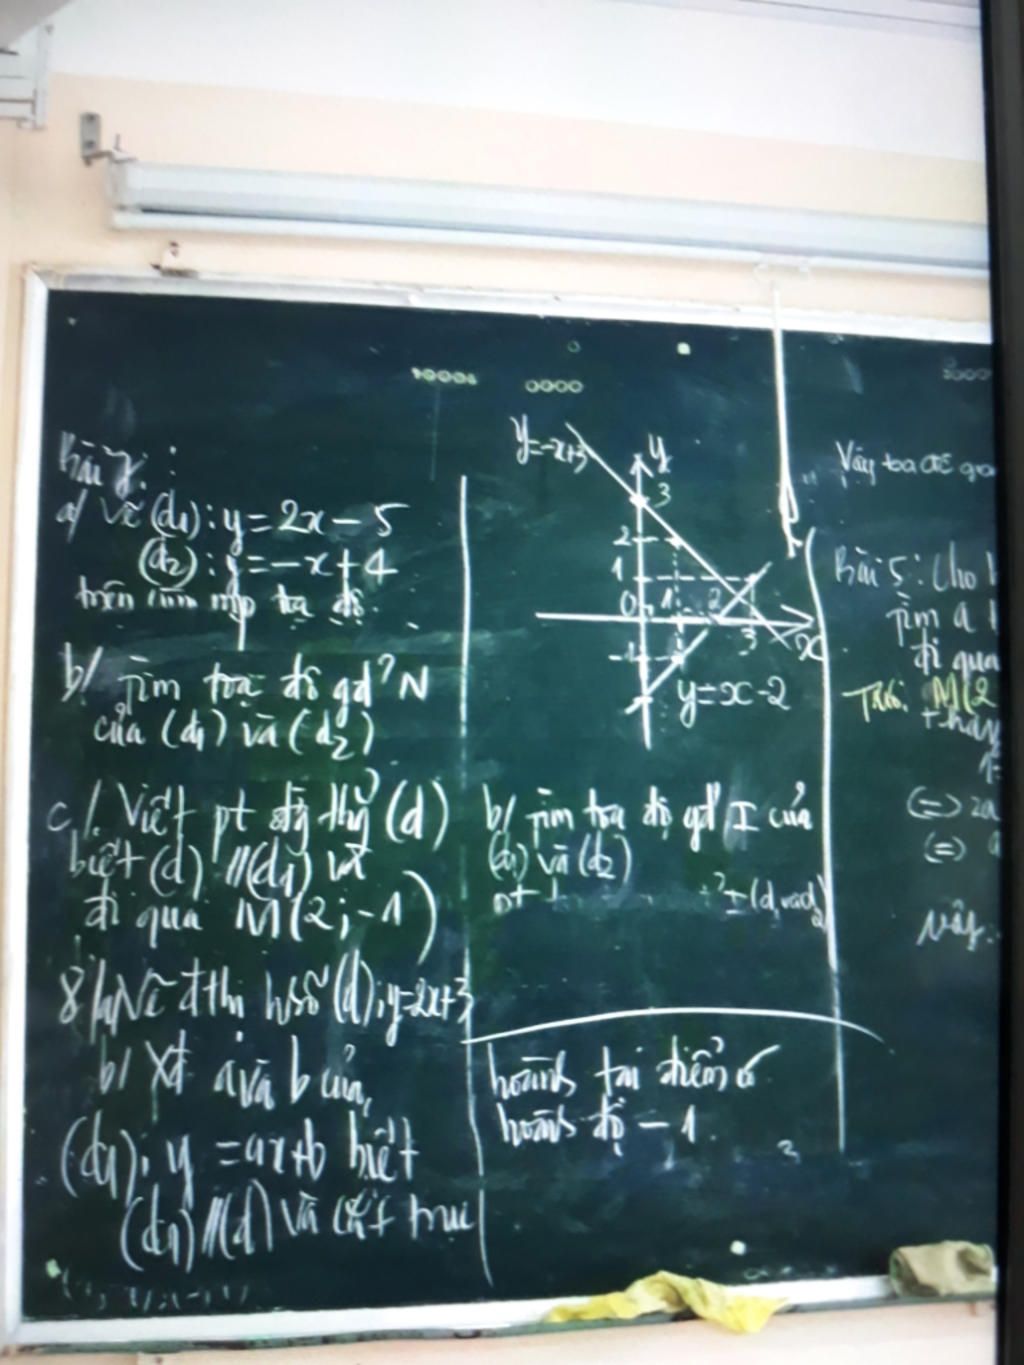 Bài 7:
a/ Vẽ (d1): y = 2x - 5
(d2): y = -x + 4
trên cùng mp tọa độ.
b/ Tìm toạ độ gđ? N
của (d1) và (d2)
c/. Viết pt đg thg (d)
biết (d) // (d1) và
đi qua M(2; -1)
8/ a/ Vẽ đthị hsố (d): y=2x+3
b/ Xđ a và b của
(d1): y = ax+b biết
(d1) // (d) và cắt trục
y=-x+3
y
3
2
1
0 1 2 3
x
-1
y=x-2
b/ Tìm toạ độ gđ I của
(d1) và (d2)
I (d1 và d2)
hoành tại điểm có
hoành độ -1
Vậy ba đt
Bài 5: Cho
Tìm a
đi qua
M(2
thay
(=) 2a
(=)
Vậy..